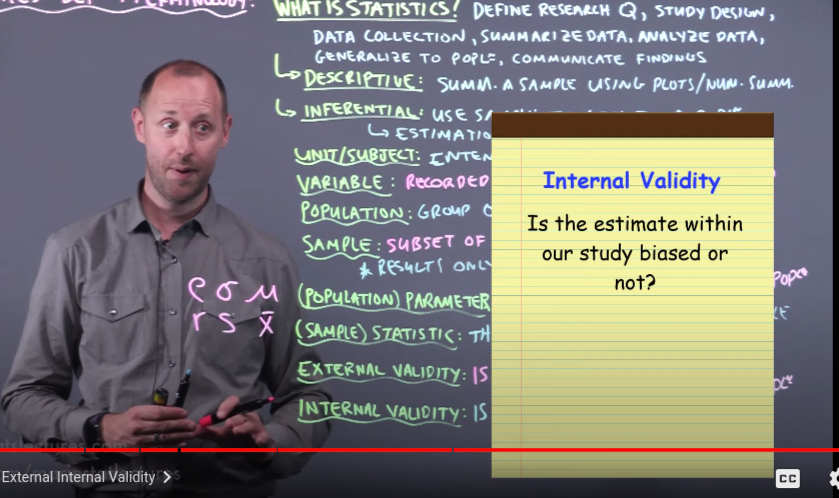 WHAT IS STATISTICS? DEFINE RESEARCH Q, STUDY DESIGN,
DATA COLLECTION, SUMMARIZE DATA, ANALYZE DATA,
GENERALIZE TO POPL, COMMUNICATE FINDINGS
DESCRIPTIVE: SUMM. A SAMPLE USING PLOTS/NUM. SUMM.
INFERENTIAL: USE
ESTIMATIO
UNIT/SUBJECT: INTEN
VARIABLE: RECORDED
POPULATION: GROUP
SAMPLE: SUBSET OF
* RESULTS ONLY
(POPULATION) PARAMETER
(SAMPLE) STATISTIC: TH
EXTERNAL VALIDITY: IS
INTERNAL VALIDITY: IS
ρ σ μ
r s x̄
Internal Validity
Is the estimate within
our study biased or
not?
External Internal Validity >
CC